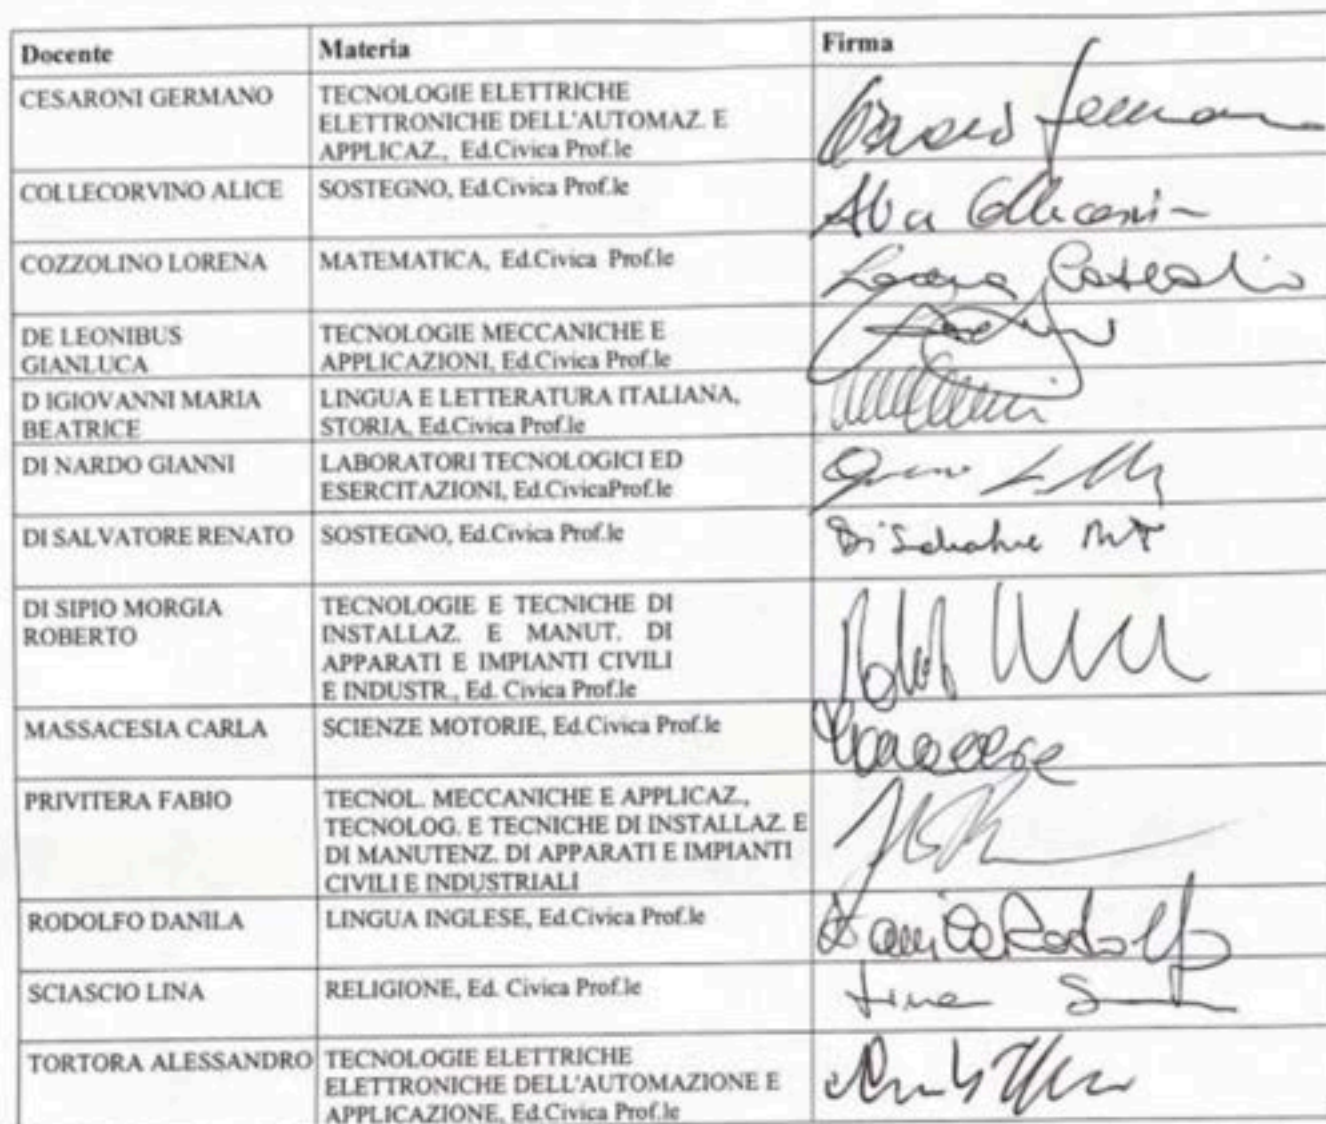 Docente Materia Firma
CESARONI GERMANO TECNOLOGIE ELETTRICHE
ELETTRONICHE DELL'AUTOMAZ. E
APPLICAZ., Ed.Civica Prof.le
COLLECORVINO ALICE SOSTEGNO, Ed.Civica Prof.le
COZZOLINO LORENA MATEMATICA, Ed.Civica Prof.le Lorena
DE LEONIBUS TECNOLOGIE MECCANICHE E
GIANLUCA APPLICAZIONI, Ed.Civica Prof.le
D IGIOVANNI MARIA LINGUA E LETTERATURA ITALIANA,
BEATRICE STORIA, Ed.Civica Prof.le
DI NARDO GIANNI LABORATORI TECNOLOGICI ED
ESERCITAZIONI, Ed.CivicaProf.le
DI SALVATORE RENATO SOSTEGNO, Ed.Civica Prof.le Di Salvatore
DI SIPIO MORGIA TECNOLOGIE E TECNICHE DI
ROBERTO INSTALLAZ. E MANUT. DI
APPARATI E IMPIANTI CIVILI
E INDUSTR., Ed. Civica Prof.le
MASSACESIA CARLA SCIENZE MOTORIE, Ed.Civica Prof.le
PRIVITERA FABIO TECNOL. MECCANICHE E APPLICAZ.,
TECNOLOG. E TECNICHE DI INSTALLAZ. E
DI MANUTENZ. DI APPARATI E IMPIANTI
CIVILI E INDUSTRIALI
RODOLFO DANILA LINGUA INGLESE, Ed.Civica Prof.le Danila Rodolfo
SCIASCIO LINA RELIGIONE, Ed. Civica Prof.le Lina
TORTORA ALESSANDRO TECNOLOGIE ELETTRICHE
ELETTRONICHE DELL'AUTOMAZIONE E
APPLICAZIONE, Ed.Civica Prof.le